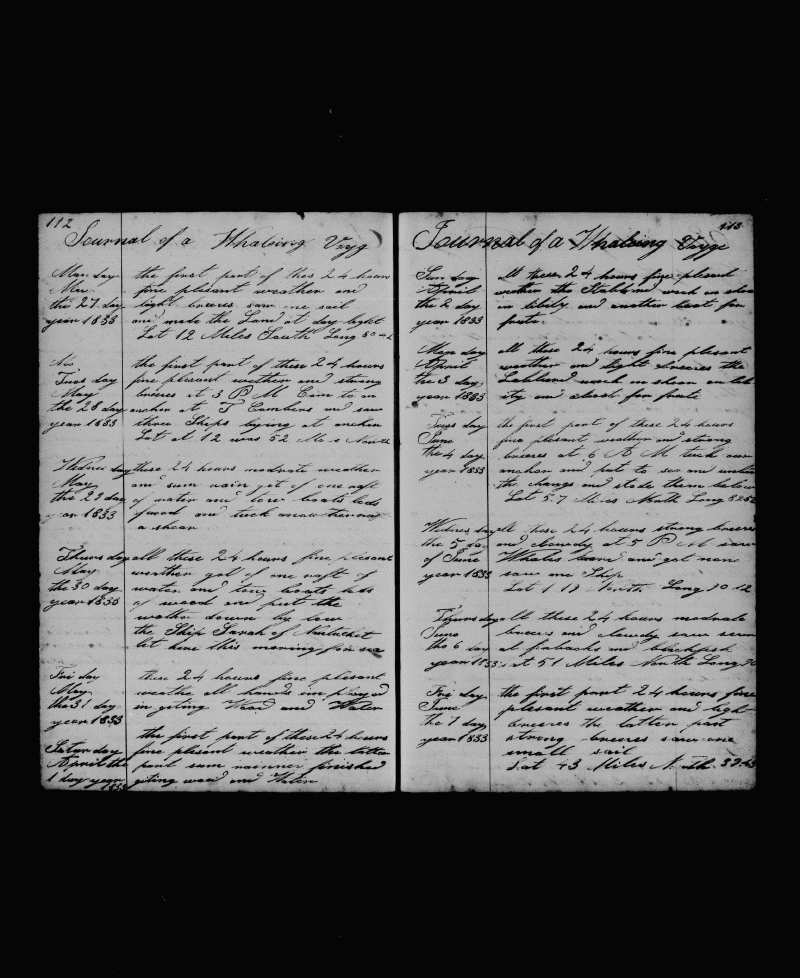 112
Journal of a Whaleing Voyg
Mon day the first part of thes 24 hours
May fine plesant weather and
the 27 day light breeses saw one sail
year 1833 and made the Land at day light
Lat 12 Miles South Long 80
the first part of these 24 hours
Tues day fine plesant wether and strong
May breeses at 3 P M Cam to an
the 28 day anchor at T Combins and saw
year 1833 three Ships lying at anchor
Lat at 12 was 52 Miles North
Wednes day these 24 hours modrate weather
May and sum rain got of one raft
the 29 day of water and tow boats lods
year 1833 of wood and
a shear
Thurs day all these 24 hours fine plesant
May weather got of one raft of
the 30 day water and tow boats lods
year 1833 of wood and put the
water down by low
the Ship Sarah of Nantucket
left here this morning for sea
Fri day these 24 hours fine plesant
May weather all hands imployed
the 31 day in giting Wood and Water
year 1833
the first part of these 24 hours
Saturday fine plesant weather the latter
April the part sum rainner finished
1 day year giting wood and Water
1833
113
Journal of a Whaleing Voyge
Sun day all these 24 hours fine plesant
April wether the Starbord woch on shear
the 2 day on liberty and another boat for
year 1833 frute
Mon day all these 24 hours fine plesant
April weather and light breeses the
the 3 day Labbord woch on shear on lib
year 1833 ity and aboat for frute
Tues day the first part of these 24 hours
June fine plesant weather and strong
the 4 day breeses at 6 A M tuck our
year 1833 anchor and put to sea and
the change and stode them below
Lat 57 Miles North Long 82
Wednes day all these 24 hours strong breeses
the 5 day and clowdy at 5 P M saw
of June Whales lowrd and got non
year 1833 saw one Ship
Lat 1 18 North Long 80 12
Thurs day all these 24 hours modrate
June breeses and clowdy saw sum
the 6 day of finbacks and blackfish
year 1833 Lat 51 Miles North Long 80
Fri day the first part 24 hours fine
June plesant weather and ligh
the 7 day breeses the latter part
year 1833 strong breeses saw one
small sail
Lat 43 Miles North